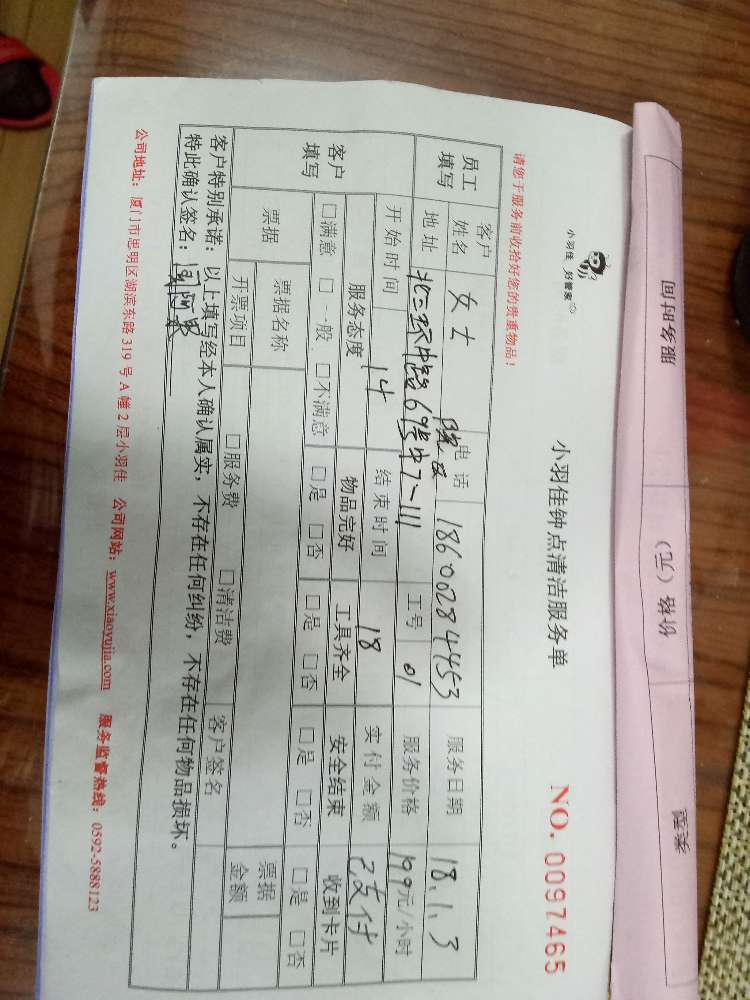 服务时间
价格（元）
频
小羽佳 好管家
小羽佳钟点清洁服务单
NO. 0097465
请您于服务前收拾好您的贵重物品！
员工填写
客户姓名 女士 电话 18600284453 服务日期 18.1.3
地址 北三环中路69号中7-111 工号 01 服务价格 199元/小时
开始时间 14 结束时间 18 实付金额 已支付
客户填写
服务态度 物品完好 工具齐全 安全结束 收到卡片
□满意 □一般 □不满意 □是 □否 □是 □否 □是 □否 □是 □否
票据
票据名称 票据金额
开票项目 □服务费 □清洁费 客户签名
客户特别承诺：以上填写经本人确认属实，不存在任何纠纷，不存在任何物品损坏。
特此确认签名：
公司地址：厦门市思明区湖滨东路319号A幢2层小羽佳 公司网站：www.xiaoyujia.com 服务监督热线：0592-5888123